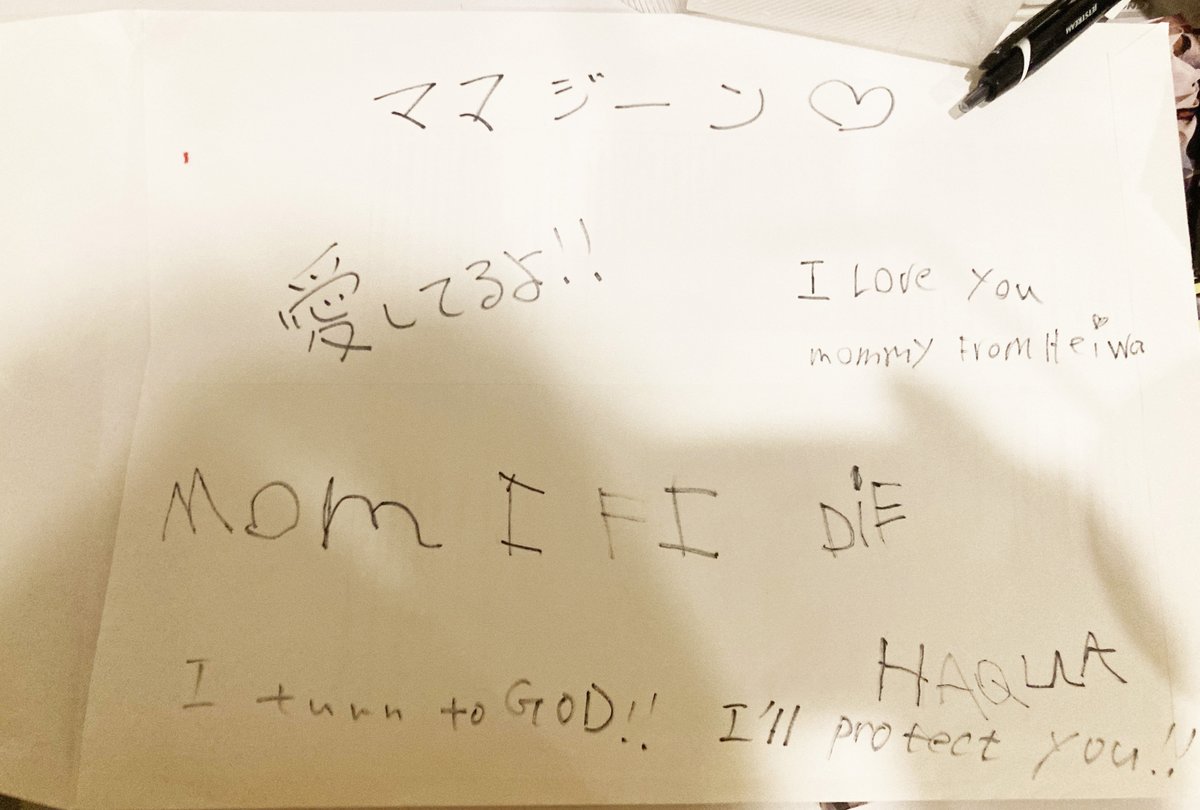 ママジーン♡
愛してるよ!!
I Love You
mommy From Heiwa
MOM I FI DiE
HAQUA
I turn to GOD!! I'll protect you!!
JETSTREAM